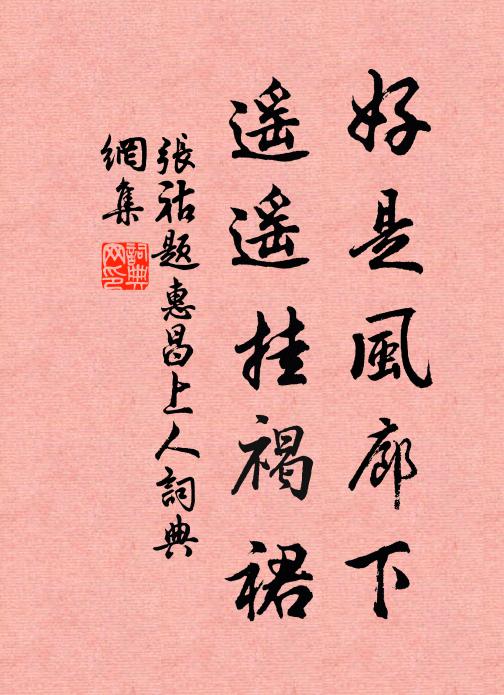 好是風廊下
遥遥挂褐裙
張祜題惠昌上人詞典
網集
詞典
网印